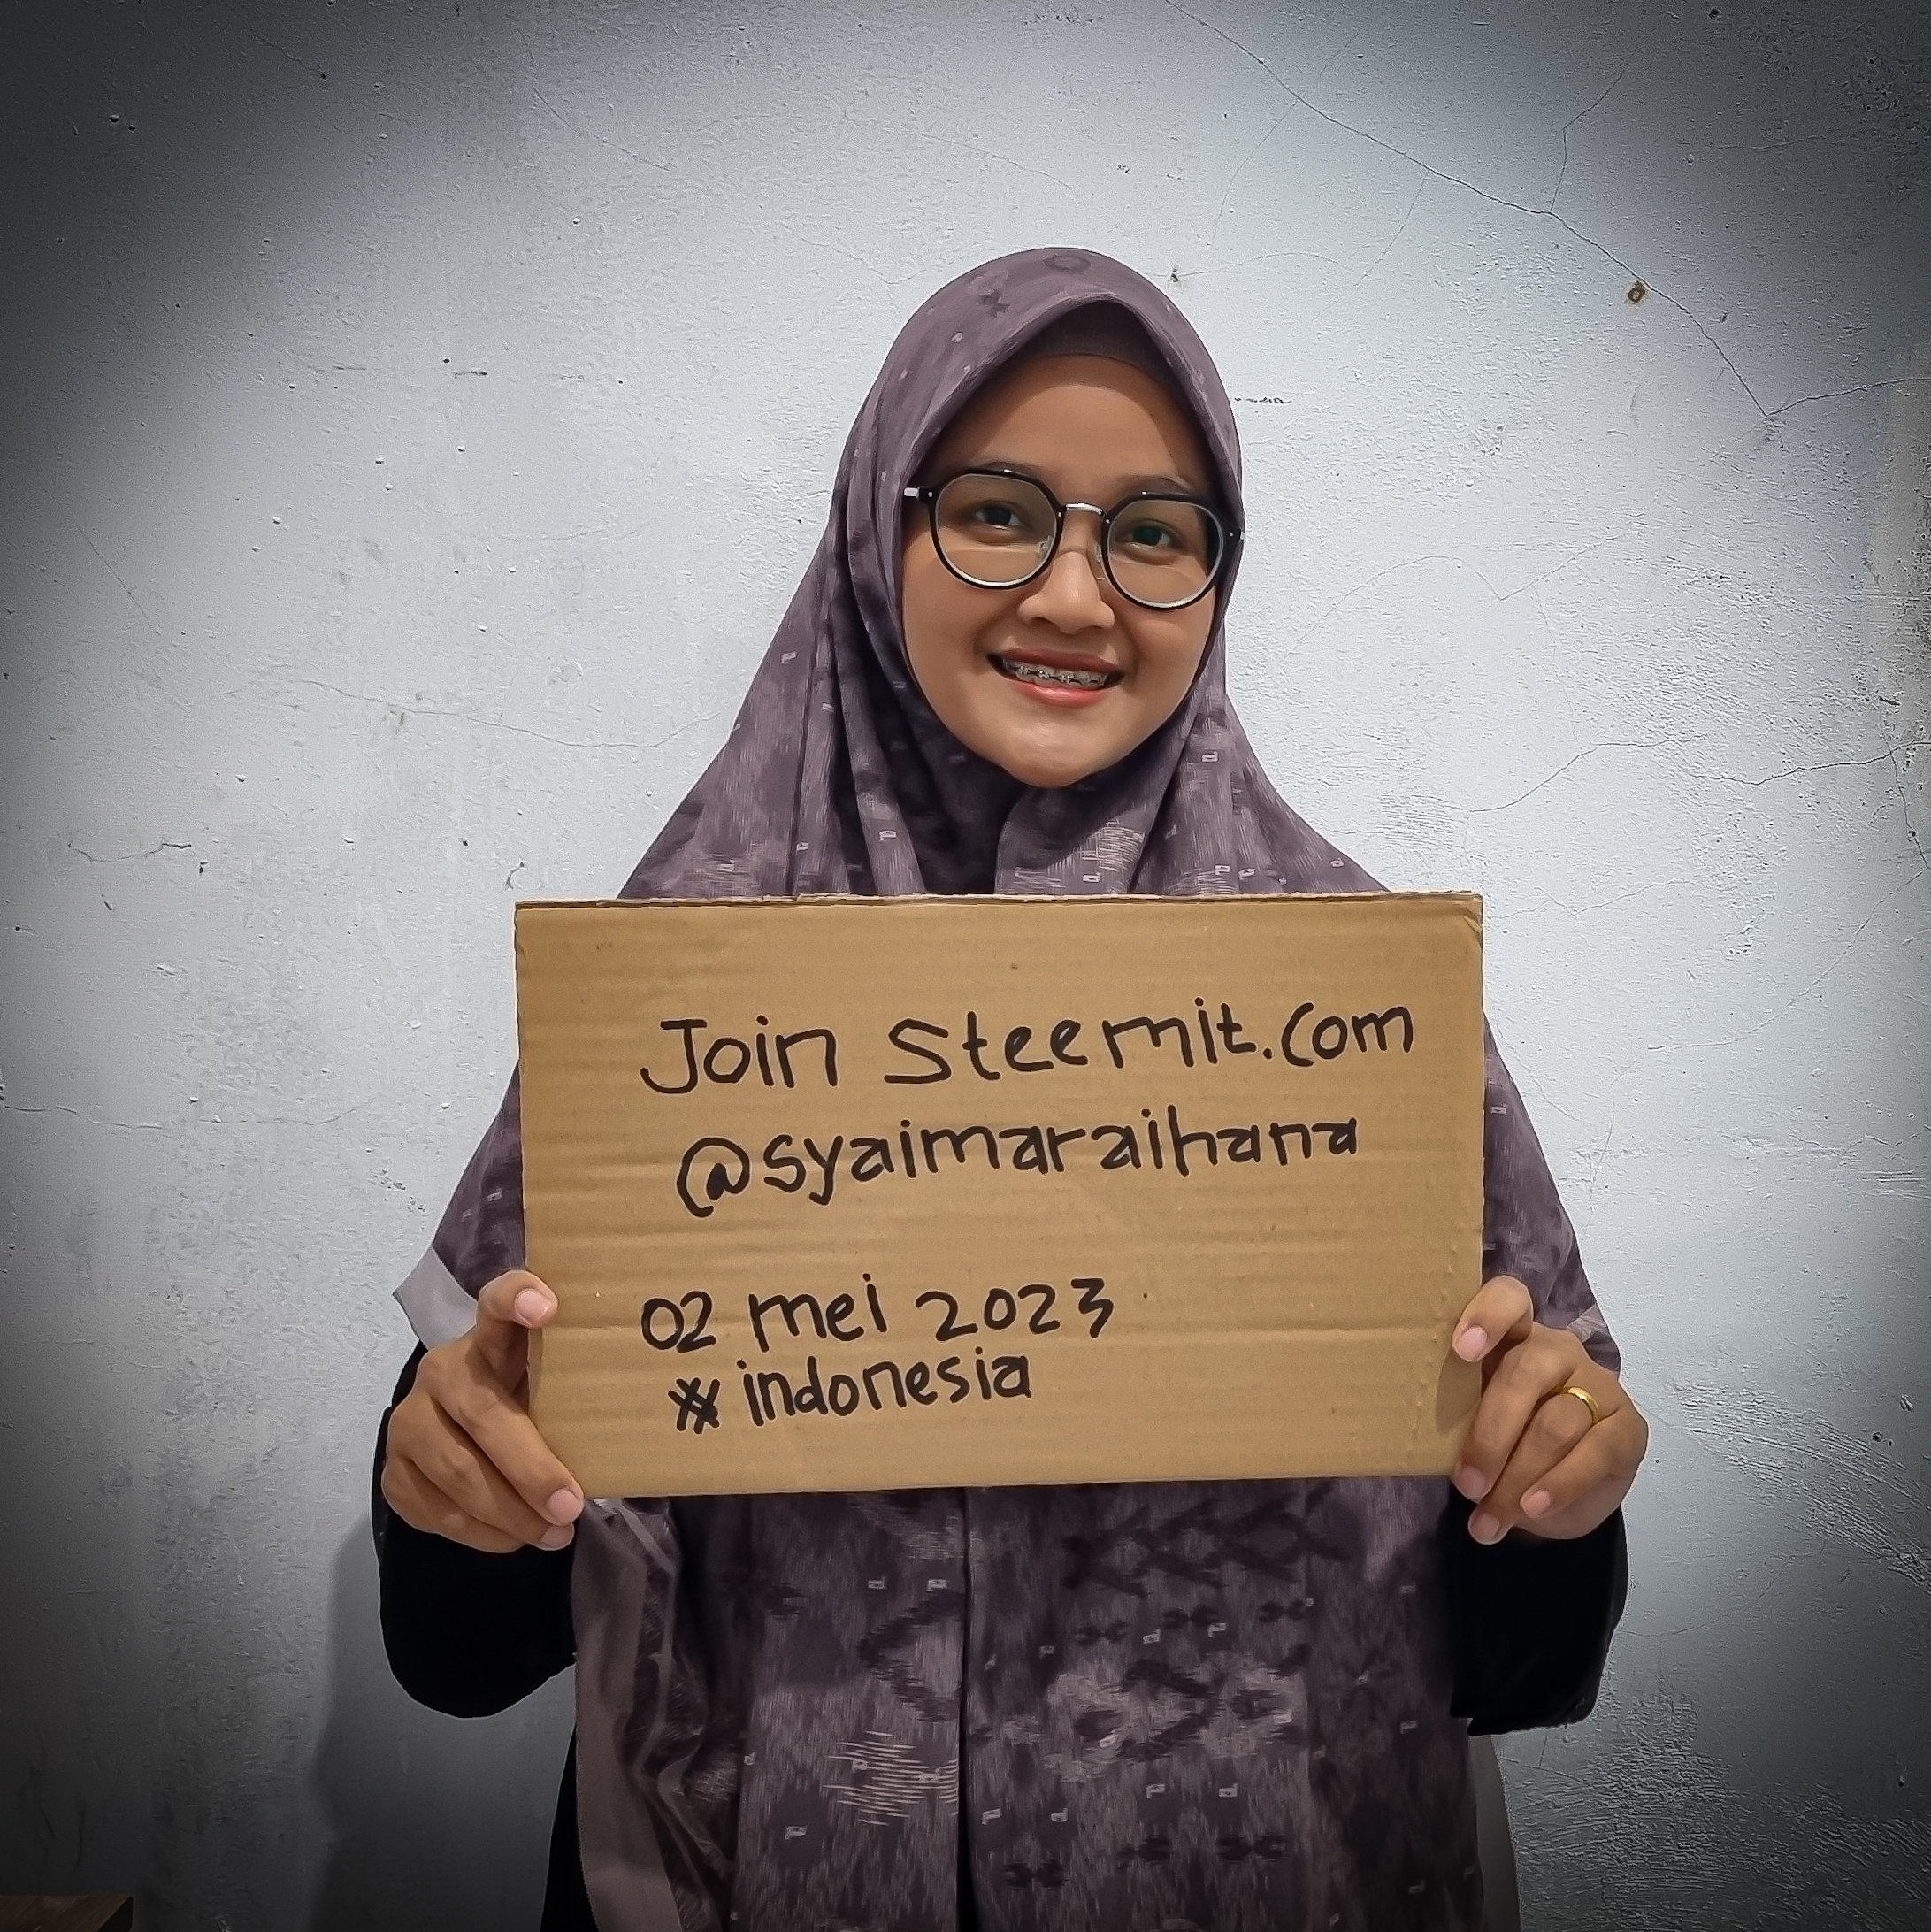 Join Steemit.com
@syaimaraihana
02 mei 2023
# indonesia